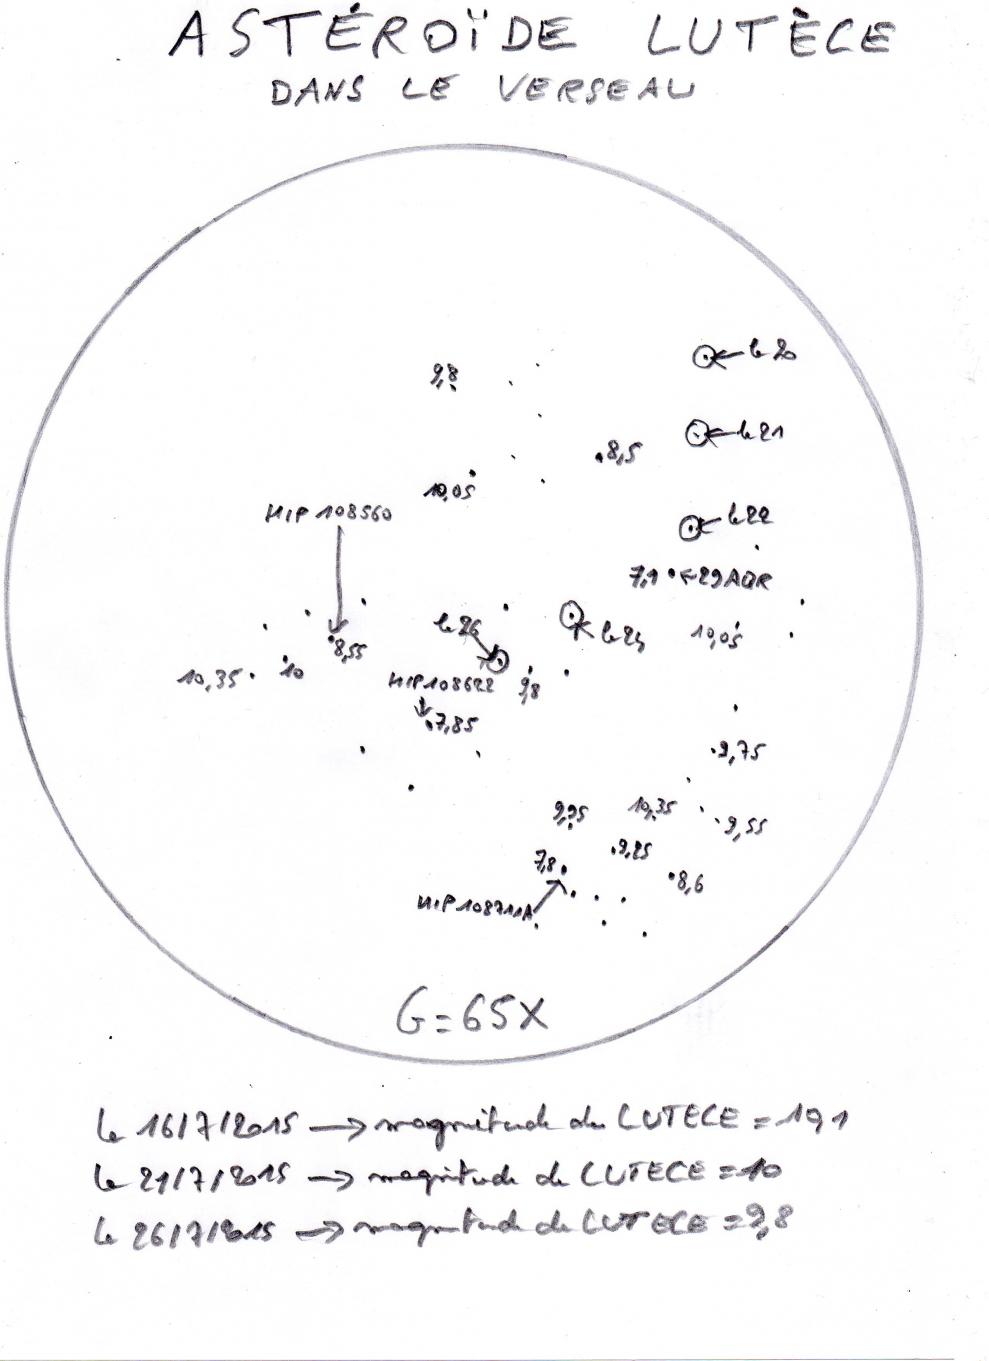 ASTÉROÏDE LUTÈCE
DANS LE VERSEAU
le 20
9,8
le 21
8,5
10,05
HIP 108560
le 22
7,1 ← 29 AQR
le 26
le 24
10,05
8,55
10,35
10
HIP 108622
9,8
7,85
9,75
9,95
10,35
9,55
9,25
7,8
8,6
HIP 108711A
G=65X
le 16/7/2015 → magnitude de LUTECE = 10,1
le 21/7/2015 → magnitude de LUTECE = 10
le 26/7/2015 → magnitude de LUTECE = 9,8